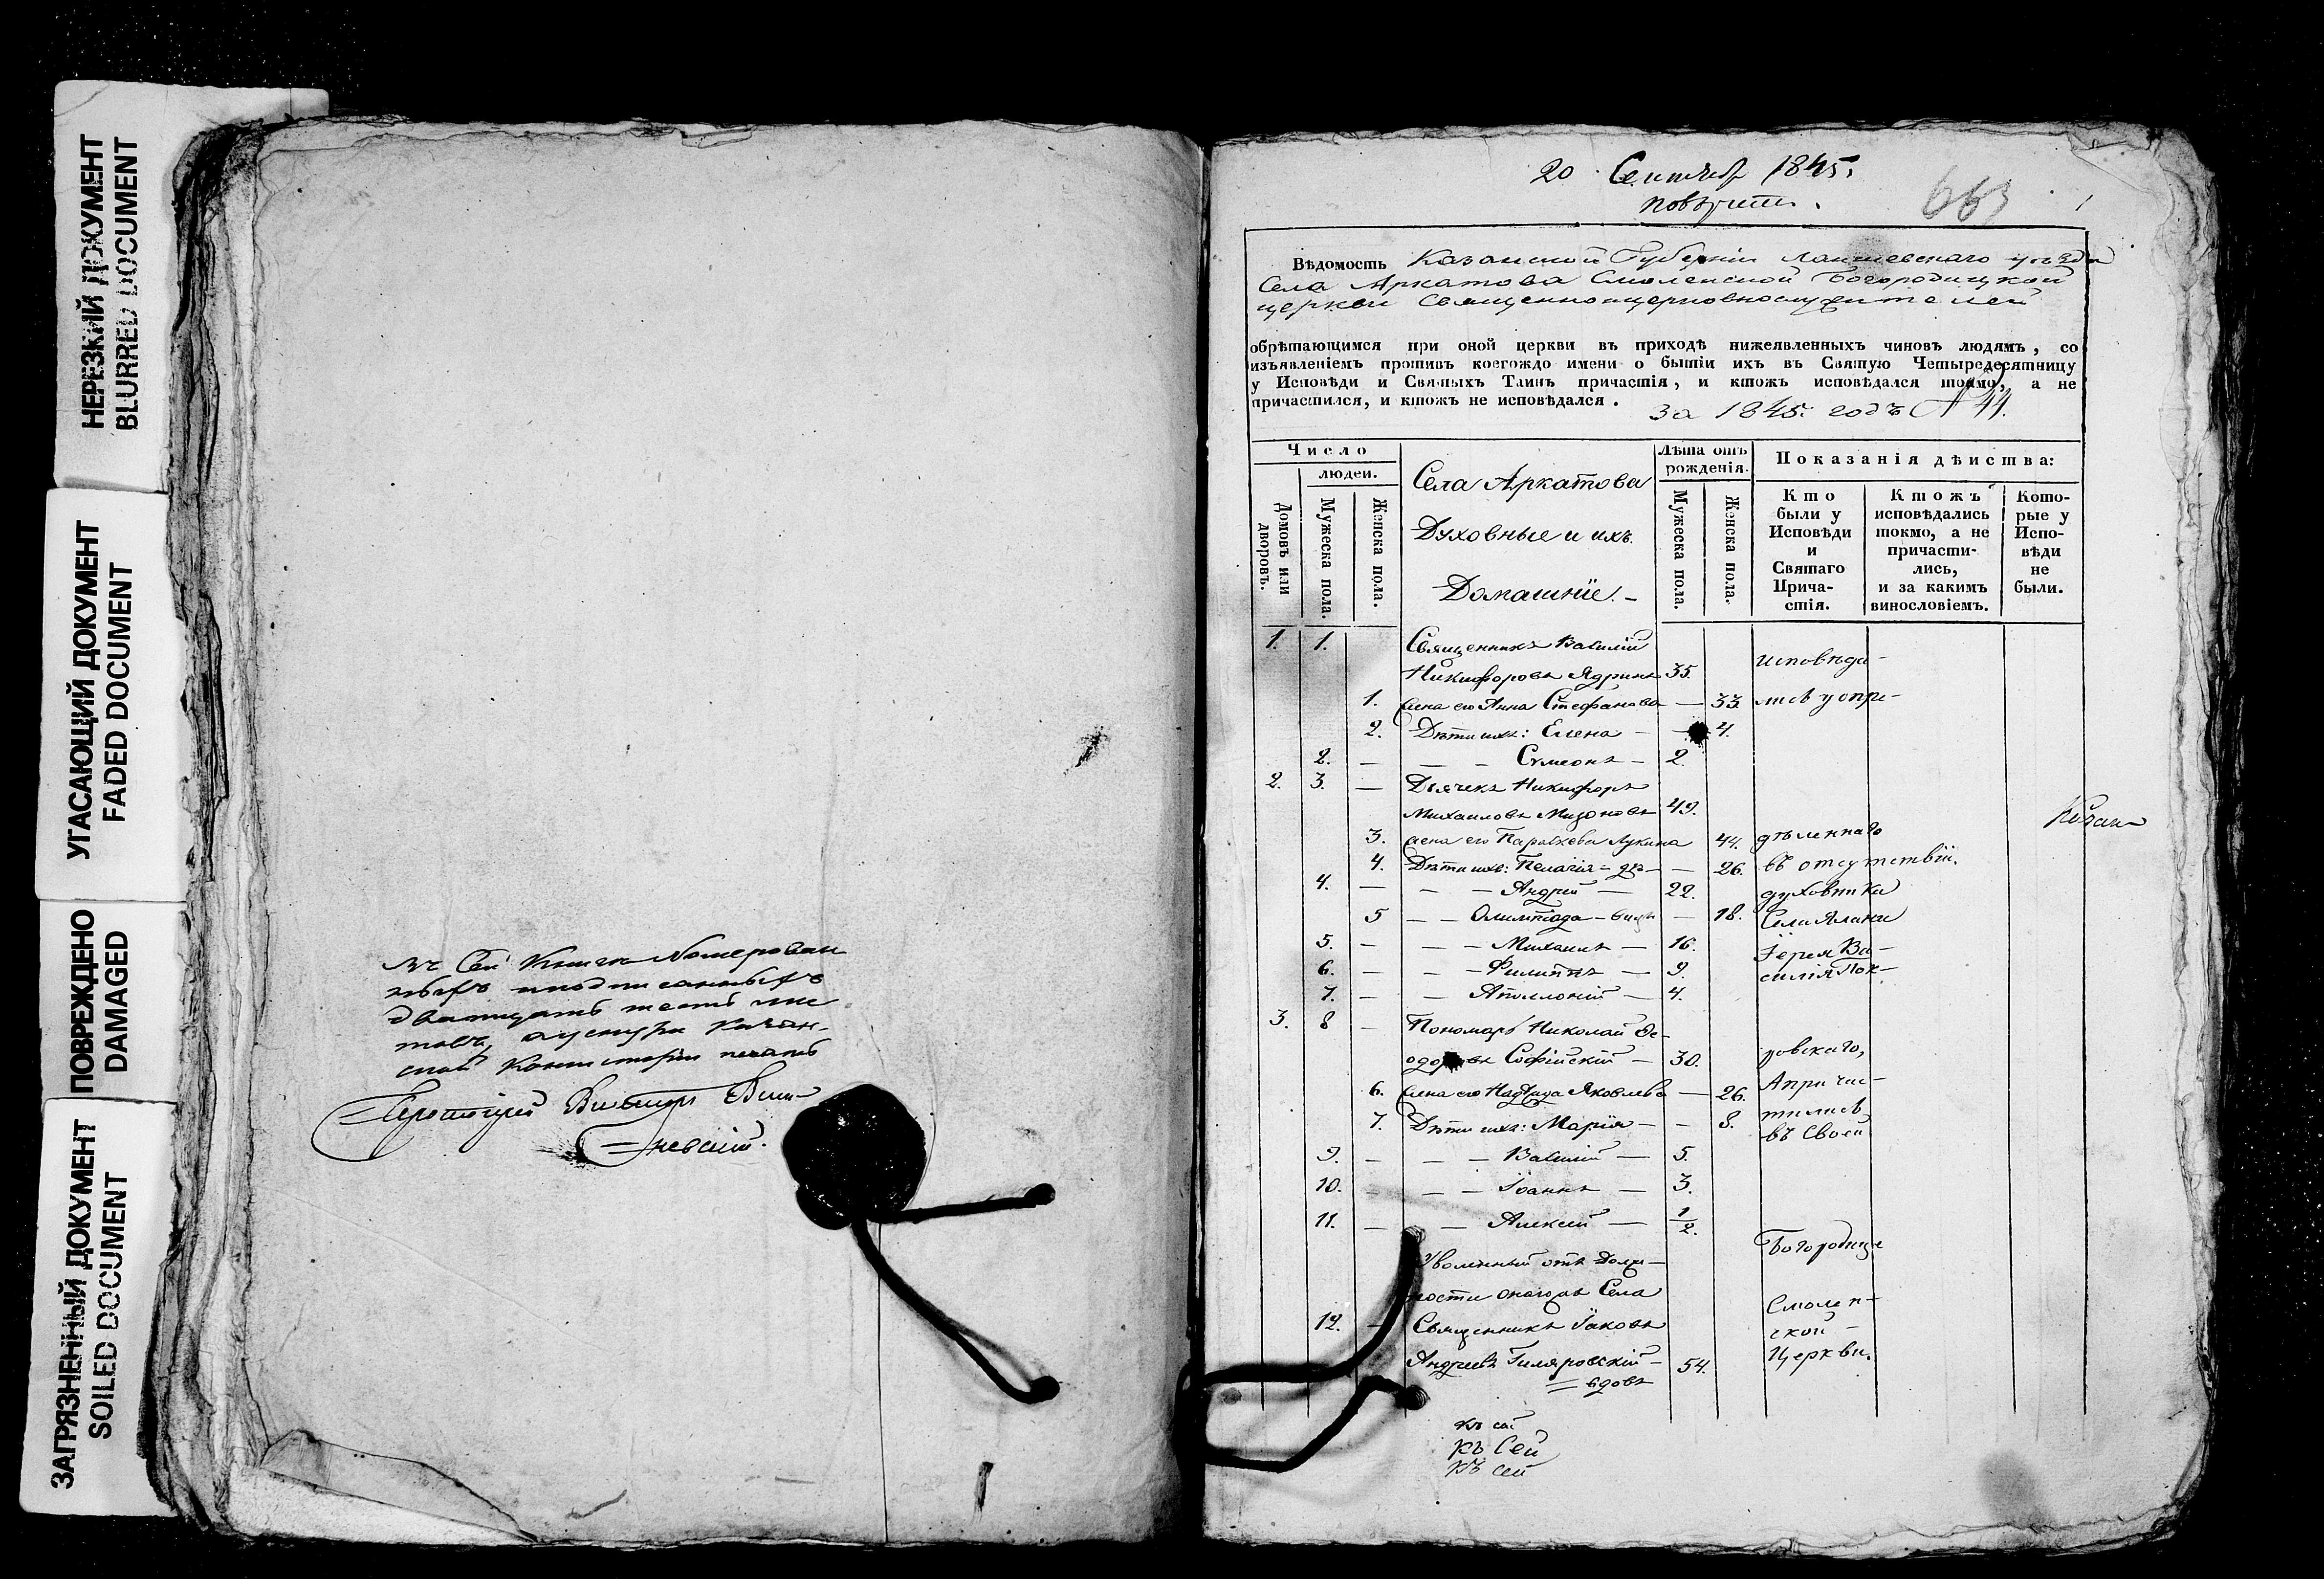 НЕРЕЗКИЙ ДОКУМЕНТ
BLURRED DOCUMENT
УГАСАЮЩИЙ ДОКУМЕНТ
FADED DOCUMENT
ПОВРЕЖДЕНО
DAMAGED
ЗАГРЯЗНЕННЫЙ ДОКУМЕНТ
SOILED DOCUMENT
Сей Книге Номерован
ныхъ
двадцать шесть лис
товъ,
Консисторіи печать
Протоіерей Викторъ Виш-
=невскій.
20 Сентября 1845.
663
Вѣдомость Казанской Губерніи Лаишевскаго уѣзда
Села Аркатова Смоленской Богородицкой
церкви Священноицерковнослужителей
обрѣтающимся при оной церкви въ приходѣ нижеявленныхъ чиновъ людямъ, со
изъявленіемъ противъ коегождо имени о бытіи ихъ въ Святую Четыредесятницу
у Исповѣди и Святыхъ Таинъ причастія, и ктожъ исповѣдался токмо, а не
причастился, и ктожъ не исповѣдался.
за 1845. годъ
Число
людей.
Домовъ или дворовъ.
Мужеска пола.
Женска пола.
Села Аркатова
Духовные и ихъ
Домашніе. -
Лѣта отъ рожденія.
Мужеска пола.
Женска пола.
Показанія дѣиства:
Кто были у Исповѣди и Святаго Прича- стія.
Ктожъ исповѣдались токмо, а не причасти- лись, и за какимъ винословіемъ.
Кото- рые у Испо- вѣди не были.
1. 1. Священникъ Василій
Никифоровъ Ядринъ 35. исповѣда-
1. Жена его Анна Стефанова — 33. лись у опре-
2. Дѣти ихъ: Елена - 4.
2. — — — Сѵмеонъ - 2.
2. 3. — Дьячекъ Никифоръ
Михаиловъ Мизоновъ 49.
3. Жена его Параскева Лукина 44. дѣленнаго
4. Дѣти ихъ: Пелагія - — 26. въ отсутствіи.
4. — — — Андрей — 22. духовника
5 — — Олимпіада - — 18. Села Алана
5. — — — Михаилъ — 16. Іерея Ва-
6. — — — Филиппъ — 9. силія Пок-
7. — — Аполлоній — 4.
3. 8 — Пономарь Николай Ѳе-
одоровъ Софійскій — 30. ровскаго,
6. Жена его Надежда Яковлева — 26. А причас-
7. Дѣти ихъ: Марія — - 8. тились
въ Своей
9. — — — Василій — 5.
10. — — — Іоаннъ — 3.
11. — — Алексій — 1/2.
Богородице
Уволенный отъ Долж-
ности онагожъ Села Смолен-
12. — Священникъ Іаковъ ской -
Андреевъ Гиляровскій - 54. Церкви.
= вдовъ
къ сей
Къ Сей
Къ сей